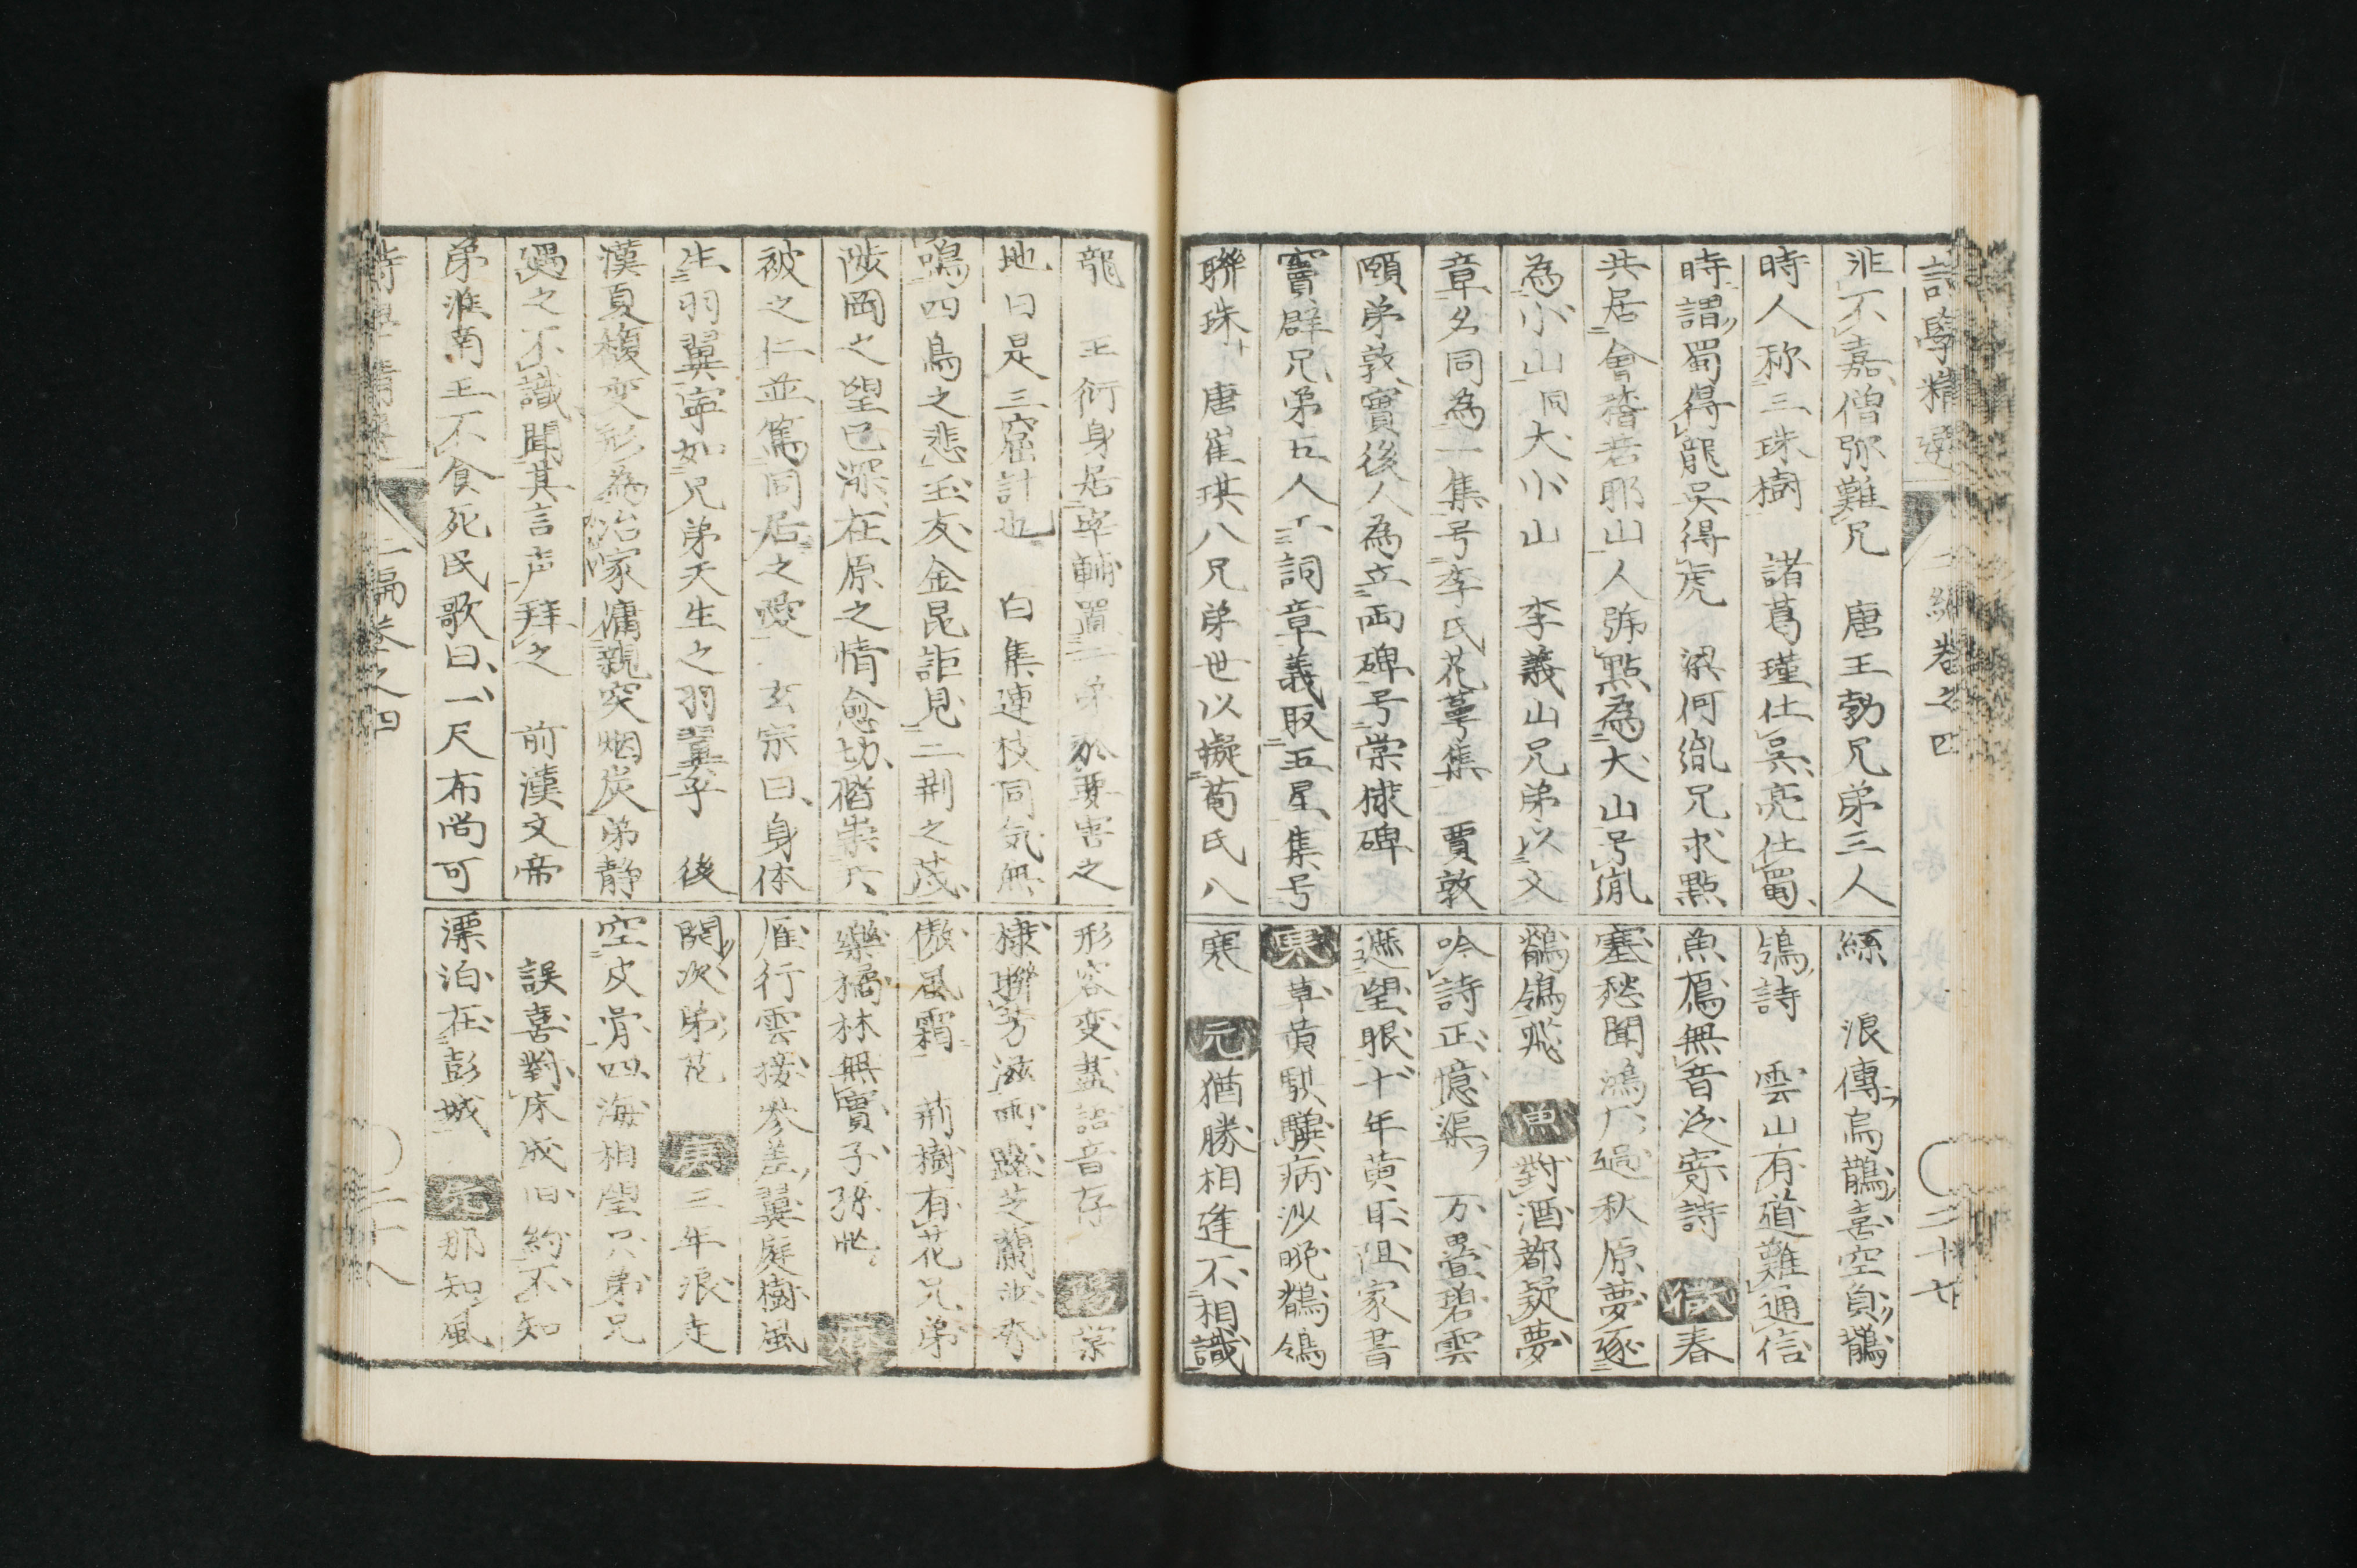 詩學精選 二編卷之四 二十七
非不嘉僧弥難兄 唐王勃兄弟三人
時人称三珠樹 諸葛瑾仕呉亮仕蜀
時謂蜀得龍呉得虎 梁何胤兄求點
共居會稽若耶山人号點為大山号胤
為小山同大小山 李義山兄弟以文
章名同為一集号李氏花萼集 賈敦
頤弟敦實後人為立両碑号棠棣碑
竇群兄弟五人工詞章義取五星集号
聯珠 唐崔琪八兄弟世以擬荀氏八
絲 浪傳烏鵲喜空負鶺
鴒詩 雲山有道難通信
魚鴈無音泛寄詩 春
塞愁聞鴻厂過秋原夢逐
鶺鴒飛 對酒都疑夢
吟詩正憶渠 万畳碧雲
遮望眼十年黄耳阻家書
草黄騏驥病沙晩鶺鴒
寒 元 猶勝相逢不相識
龍 王衍身居宰輔置二弟於要害之
地曰是三窟計也 白集連枝同気無
鳴四鳥之悲玉友金昆詎見二荆之茂
陟岡之望已深在原之情愈切偕崇六
被之仁並篤同居之愛 玄宗曰身体
生羽翼寧如兄弟天生之羽翼乎 後
漢夏馥変形為冶家傭親突烟炭弟静
遇之不識聞其言声拜之 前漢文帝
弟淮南王不食死民歌曰一尺布尚可
形容変盡語音存 棠
棣聯芳滋雨露芝蘭並秀
傲風霜 荊樹有花兄弟
樂橘林無實子孫忙
雁行雲接參差翼庭樹風
開次弟花 三年浪走
空皮骨四海相望只弟兄
誤喜對床成旧約不知
漂泊在彭城 那知風
詩學精選 二編卷之四 二十八